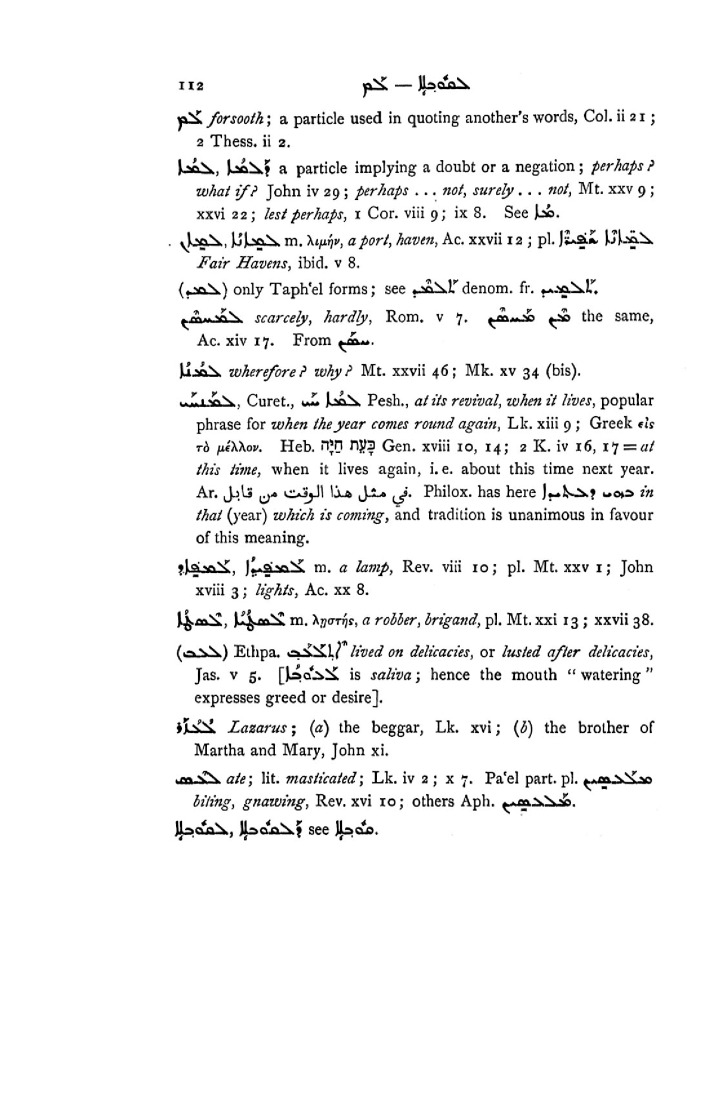 112 ܠܡ — ܠܩܘܒܠܐ
ܠܡ forsooth; a particle used in quoting another's words, Col. ii 21;
2 Thess. ii 2.
ܠܡܐ, ܕܠܡܐ a particle implying a doubt or a negation; perhaps?
what if? John iv 29; perhaps ... not, surely ... not, Mt. xxv 9;
xxvi 22; lest perhaps, 1 Cor. viii 9; ix 8. See ܡܐ.
ܠܡܐܢ, ܠܡܐܢܐ m. λιμήν, a port, haven, Ac. xxvii 12; pl. ܠܡܐܢܐ ܫܦܝܪܐ
Fair Havens, ibid. v 8.
(ܠܡܕ) only Taph'el forms; see ܬܠܡܕ denom. fr. ܬܠܡܝܕ.
ܠܡܚܣܢ scarcely, hardly, Rom. v 7. ܡܢ ܡܚܣܢ the same,
Ac. xiv 17. From ܚܣܢ.
ܠܡܢܐ wherefore? why? Mt. xxvii 46; Mk. xv 34 (bis).
Curet., ܠܡܐ ܚܝ Pesh., at its revival, when it lives, popular
phrase for when the year comes round again, Lk. xiii 9; Greek εἰς
τὸ μέλλον. Heb. כָּעֵת חַיָּה Gen. xviii 10, 14; 2 K. iv 16, 17 = at
this time, when it lives again, i.e. about this time next year.
Ar. في مثل هذا الوقت من قابل. Philox. has here in
that (year) which is coming, and tradition is unanimous in favour
of this meaning.
ܠܡܦܐܕ, ܠܡܦܝܕܐ m. a lamp, Rev. viii 10; pl. Mt. xxv 1; John
xviii 3; lights, Ac. xx 8.
ܠܣܛܐ, ܠܣܛܝܐ m. λῃστής, a robber, brigand, pl. Mt. xxi 13; xxvii 38.
(ܠܥܒ) Ethpa. ܐܬܠܥܒ lived on delicacies, or lusted after delicacies,
Jas. v 5. [ܠܥܘܒܐ is saliva; hence the mouth "watering"
expresses greed or desire].
ܠܥܙܪ Lazarus; (a) the beggar, Lk. xvi; (b) the brother of
Martha and Mary, John xi.
ܠܥܣ ate; lit. masticated; Lk. iv 2; x 7. Pa'el part. pl. ܡܠܥܣܝܢ
biting, gnawing, Rev. xvi 10; others Aph. ܡܠܥܣܝܢ.
ܠܩܘܒܠܐ, ܕܠܩܘܒܠܐ see ܩܘܒܠܐ.